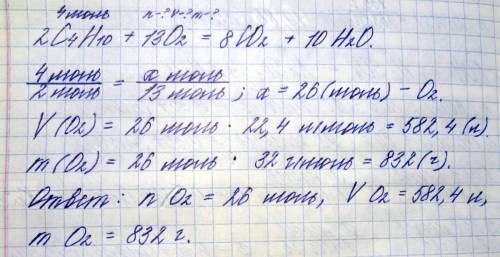 4 моль n-? V-? m-?
2C4H10 + 13O2 = 8CO2 + 10H2O.
4 моль/2 моль = x моль/13 моль; x = 26 (моль) – O2.
V (O2) = 26 моль · 22,4 л/моль = 582,4 (л).
m (O2) = 26 моль · 32 г/моль = 832 (г).
Ответ: n O2 = 26 моль, V O2 = 582,4 л,
m O2 = 832 г.